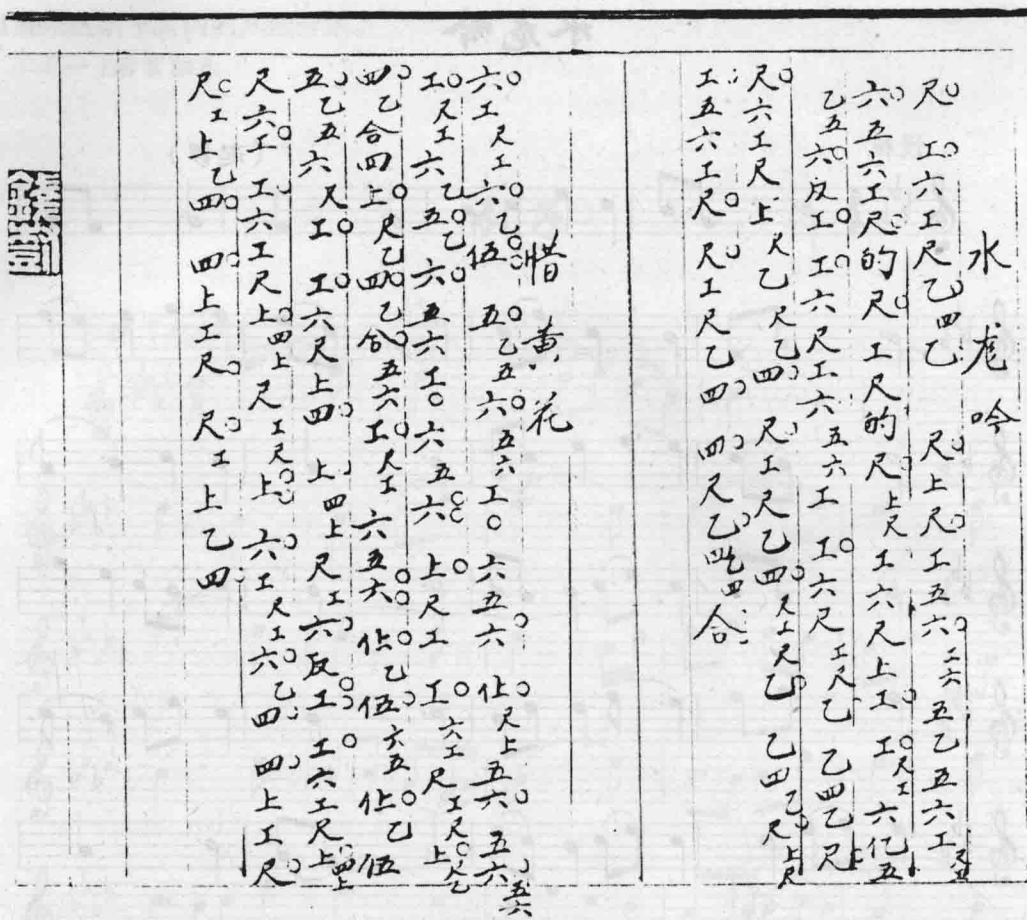 水龙吟
尺工六工尺乙四乙 尺上尺工五六工六五乙五六工
六五六工尺的尺工尺的尺上尺工六尺上工工尺工六亿五
乙五六反工工六尺工六五六工工六尺工尺乙乙四乙尺
尺六工尺上尺乙尺乙四尺工尺乙四尺工尺乙乙四乙尺上尺
工五六工尺尺工尺乙四四尺乙四四合
惜黄花
六工尺工六乙伍五乙五六五六工六五六仩尺上五六五六五六
工尺工六乙五乙六五六工六五六上尺工工六工尺工尺上尺乙
四乙合四上尺乙四四乙合五六工尺工六五六仩乙伍六五仩乙伍
五乙五六尺工工六尺上四上四上尺工六反工工六工尺上四上
尺六工工六工尺上四上尺工尺上六工尺工六乙四四上工尺
尺工上乙四四上工尺尺工上乙四